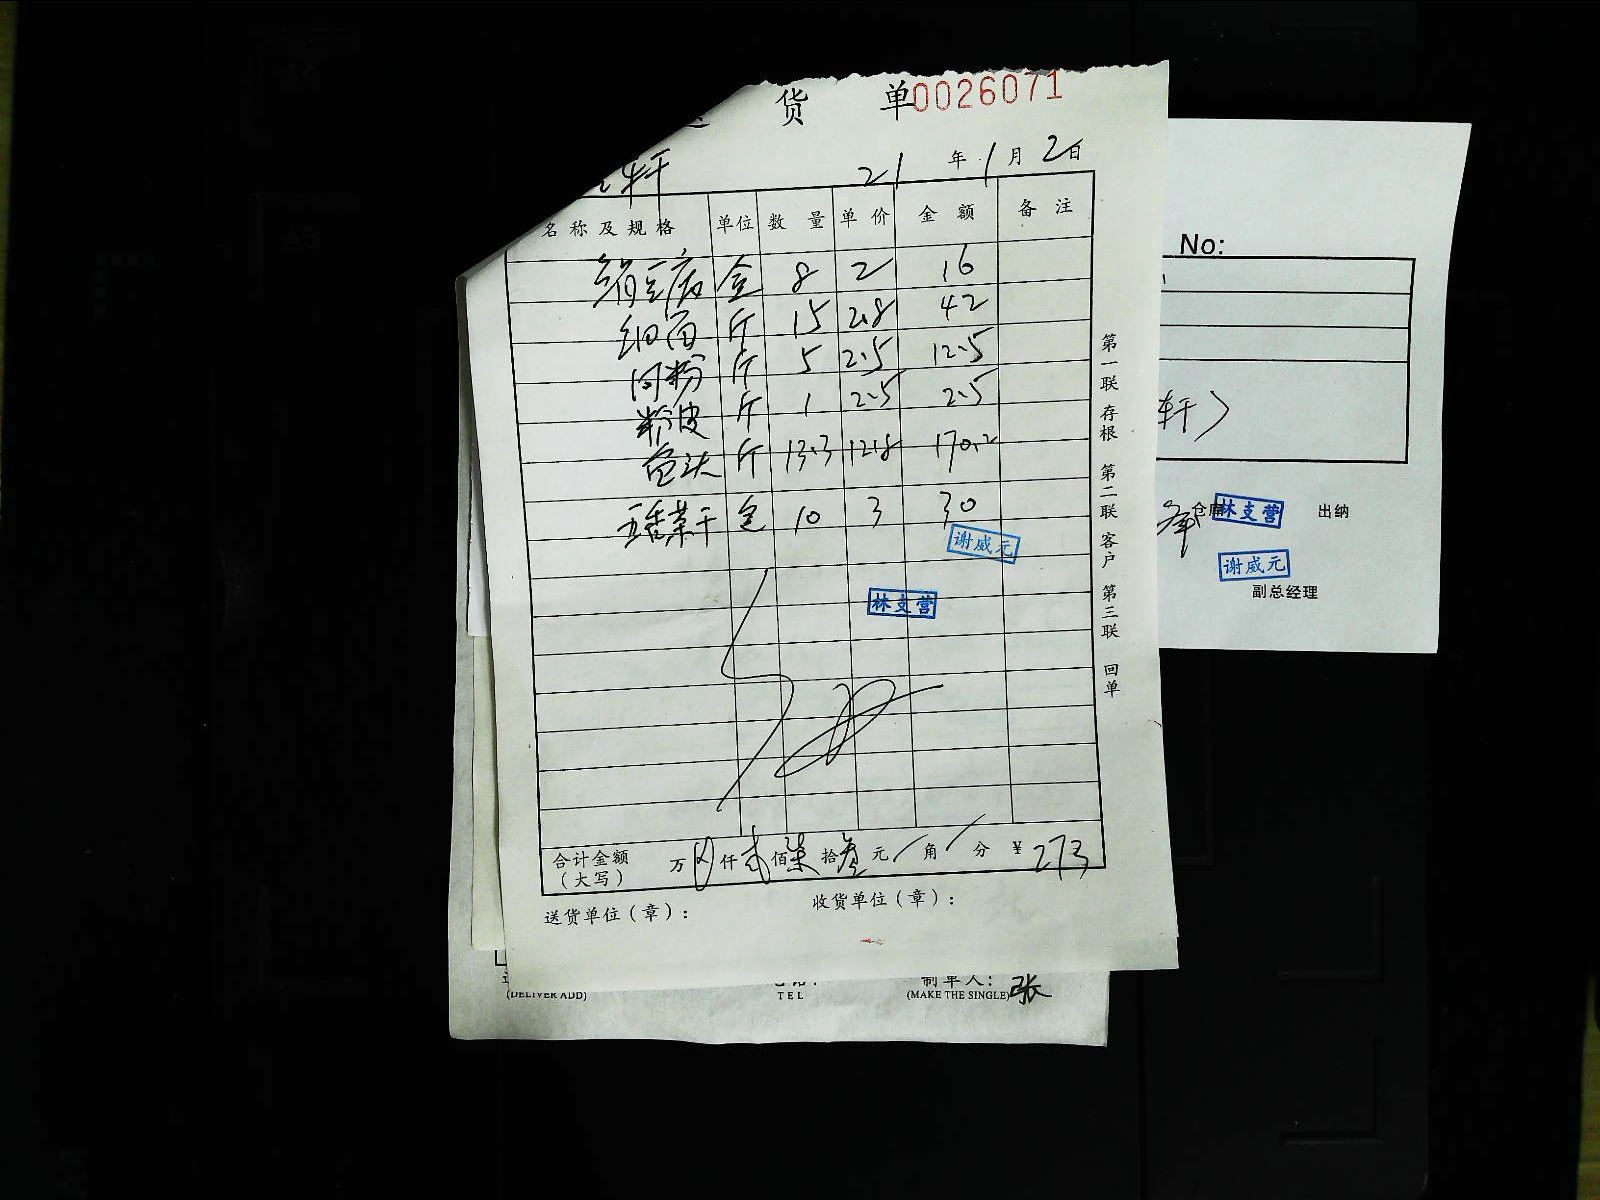 货 单 0026071
轩
21 年 1 月 2 日
名称及规格 单位 数量 单价 金额 备注
绢豆腐 盒 8 2 16
细面 斤 15 2.8 42
河粉 斤 5 2.5 12.5
粉皮 斤 1 2.5 2.5
鱼头 斤 13.3 12.8 170.2
五香菜干 包 10 3 30
谢威元
林支营
合计金额（大写） 万 仟 贰 佰 柒 拾 叁 元 / 角 / 分 ¥ 273
送货单位（章）： 收货单位（章）：
第一联 存根 第二联 客户 第三联 回单
No:
轩）
仓库 林支营 出纳
谢威元
副总经理
制单人： 张
(DELIVER ADD) TEL (MAKE THE SINGLE)